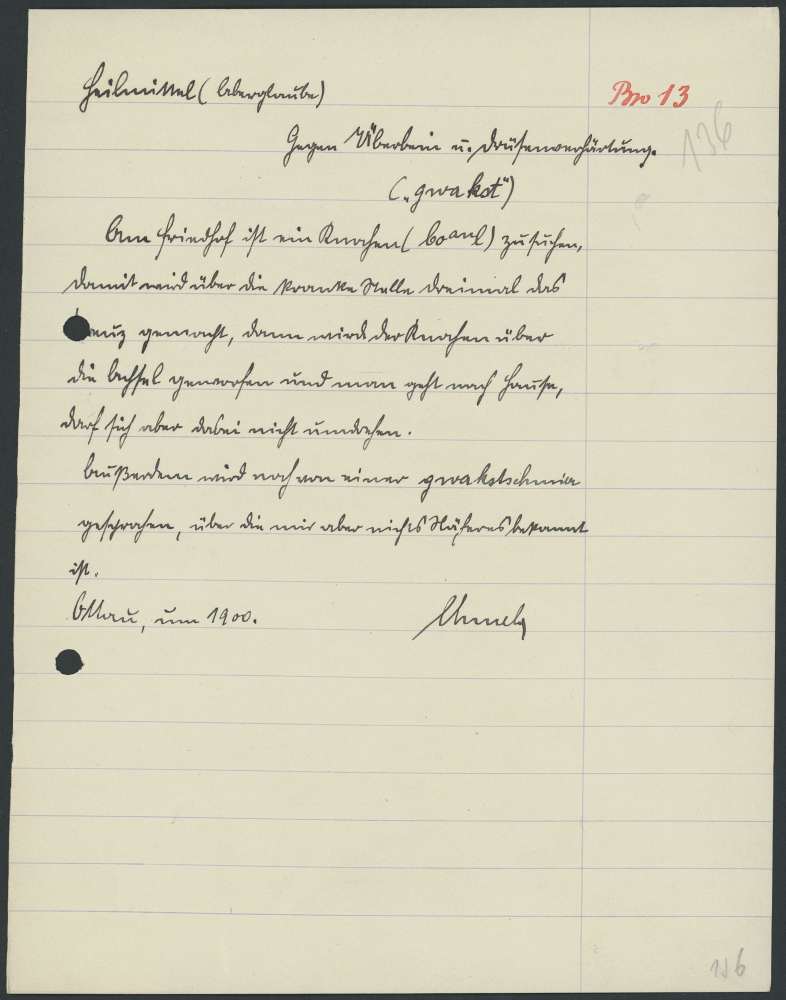 Heilmittel (Aberglaube)
Bro 13
136
Gegen Überbein u. Drüsenverhärtung.
(„gwakst")
Am Friedhof ist ein Knochen (boanl) zu suchen,
damit wird über die kranke Stelle dreimal das
Kreuz gemacht, dann wird der Knochen über
die Achsel geworfen und man geht nach Hause,
darf sich aber dabei nicht umdrehen.
Außerdem wird noch von einer gwakstschmier
gesprochen, über die mir aber nichts Näheres bekannt
ist.
Ottau, um 1900.
136